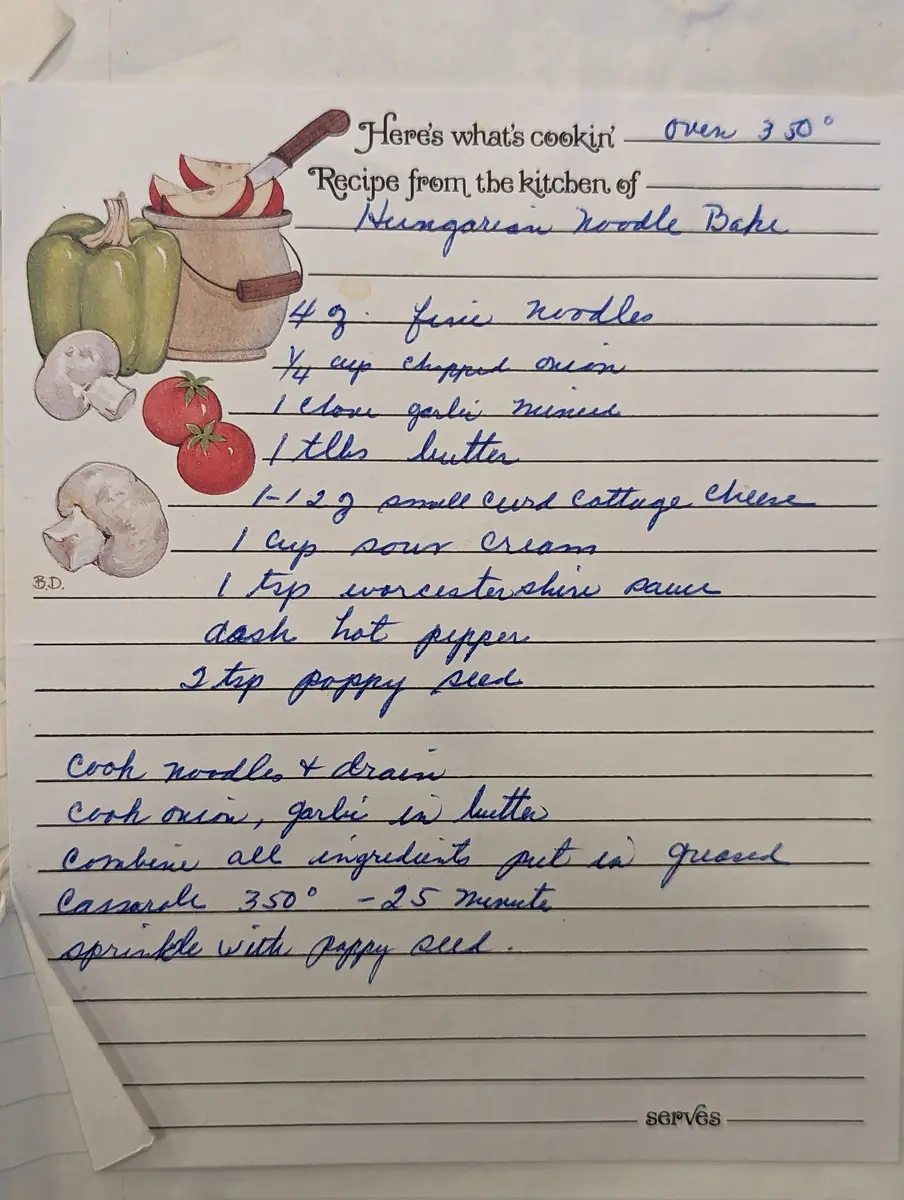 Here's what's cookin' oven 350°
Recipe from the kitchen of
Hungarian Noodle Bake
4 oz. fine noodles
1/4 cup chopped onion
1 clove garlic minced
1 tlbs butter
1-12 oz small curd cottage cheese
1 cup sour cream
1 tsp worcestershire sauce
dash hot pepper
2 tsp poppy seed
Cook noodles & drain
Cook onion, garlic in butter
Combine all ingredients put in greased
Casserole 350° - 25 minute
sprinkle with poppy seed.
B.D.
serves